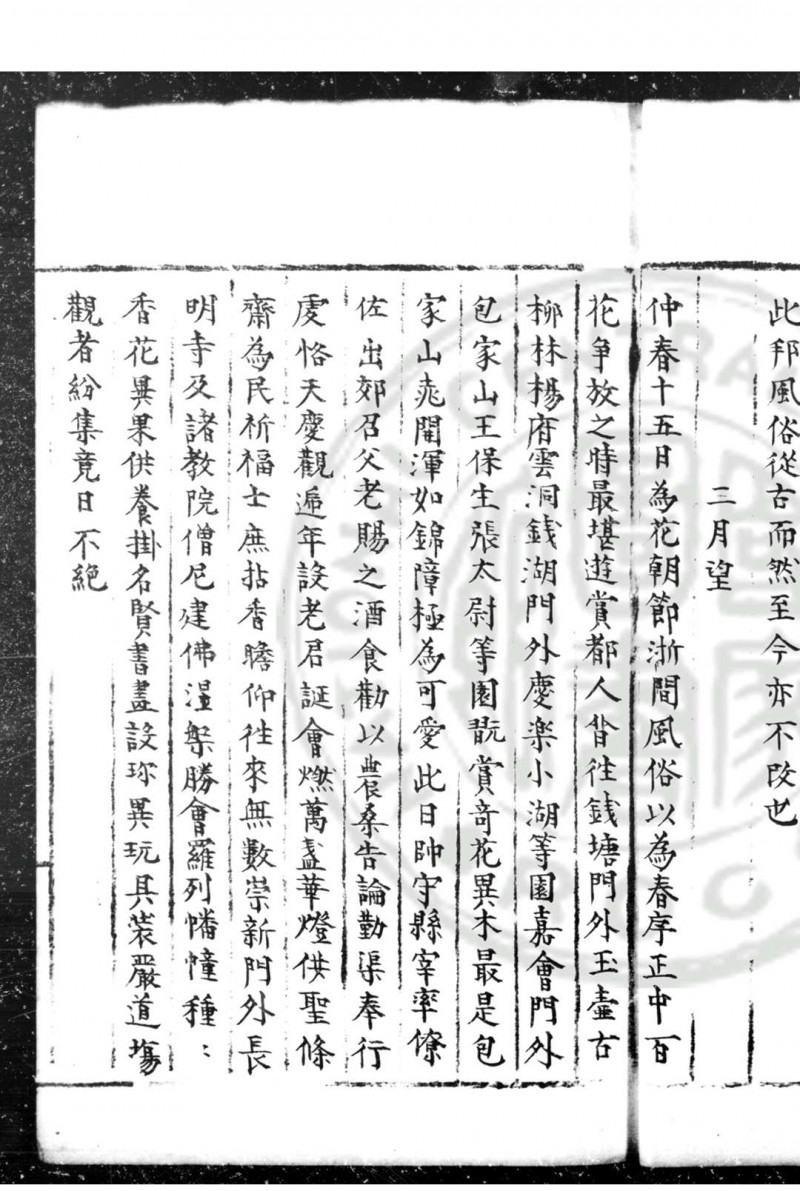 此邦風俗從古而然至今亦不改也
二月望
仲春十五日為花朝節浙間風俗以為春序正中百
花争放之時最堪遊賞都人皆往錢塘門外玉壺古
柳林楊府雲洞錢湖門外慶楽小湖等園嘉會門外
包家山王保生張太尉等園翫賞奇花異木最是包
家山桃開渾如錦障極為可愛此日帥守縣宰率僚
佐出郊召父老賜之酒食勸以農桑告諭勤渠奉行
虔恪天慶觀遞年設老君誕會燃萬盞華燈供聖修
齋為民祈福士庶拈香瞻仰往來無數崇新門外長
明寺及諸教院僧尼建佛涅槃勝會羅列幡幢種〻
香花異果供養掛名賢書畫設珎異玩具裝嚴道塲
觀者紛集竟日不絶